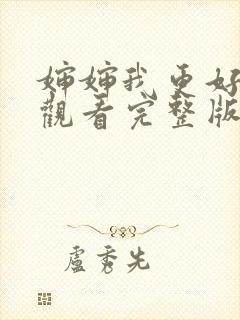 婶婶我更好
觀看完整版
盧秀先